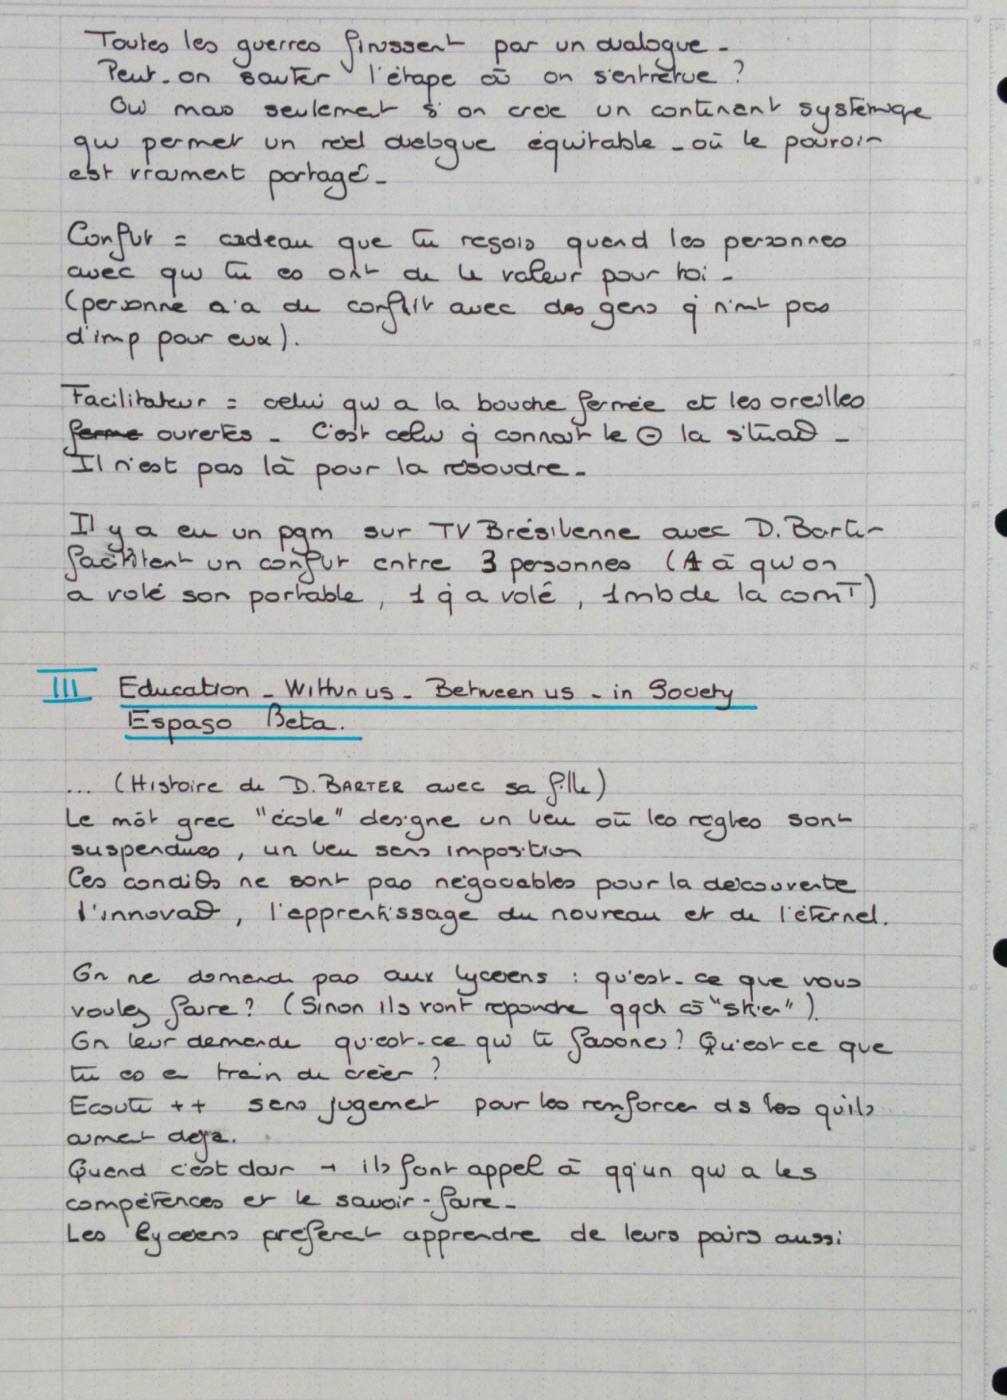 Toutes les guerres finissent par un dialogue.
Peut-on sauter l'étape où on s'entretue ?
Oui mais seulement s'on crée un contenant systémique
qui permet un réel dialogue équitable - où le pouvoir
est vraiment partagé.
Conflit = cadeau que tu reçois quand les personnes
avec qui tu es ont de la valeur pour toi -
(personne n'a de conflit avec des gens q̇ n'ont pas
d'imp pour eux).
Facilitateur = celui qui a la bouche fermée et les oreilles
ferme ouvertes - C'est celui q̇ connait le ⊖ la situa° -
Il n'est pas là pour la résoudre -
Il y a eu un pgm sur TV Brésilienne avec D. Barter
facilitant un conflit entre 3 personnes (1 à qui on
a volé son portable, 1 q̇ a volé, 1 mb de la comT)
III Education - Within us - Between us - in Society
Espaço Beta.
... (Histoire de D. BARTER avec sa fille)
Le môt grec "école" désigne un lieu où les règles sont
suspendues, un lieu sans imposition
Ces condi°s ne sont pas négociables pour la découverte
l'innova°, l'apprentissage du nouveau et de l'éternel.
On ne demande pas aux lycéens : qu'est-ce que vous
voulez faire ? (Sinon ils vont répondre qqch cō "skier").
On leur demande qu'est-ce qui te fascine ? Qu'est ce que
tu es en train de créer ?
Ecoute ++ sans jugement pour les renforcer ds les qu'ils
aiment déjà.
Quand c'est clair → ils font appel à qq'un qui a les
compétences et le savoir-faire -
Les lycéens préfèrent apprendre de leurs pairs aussi